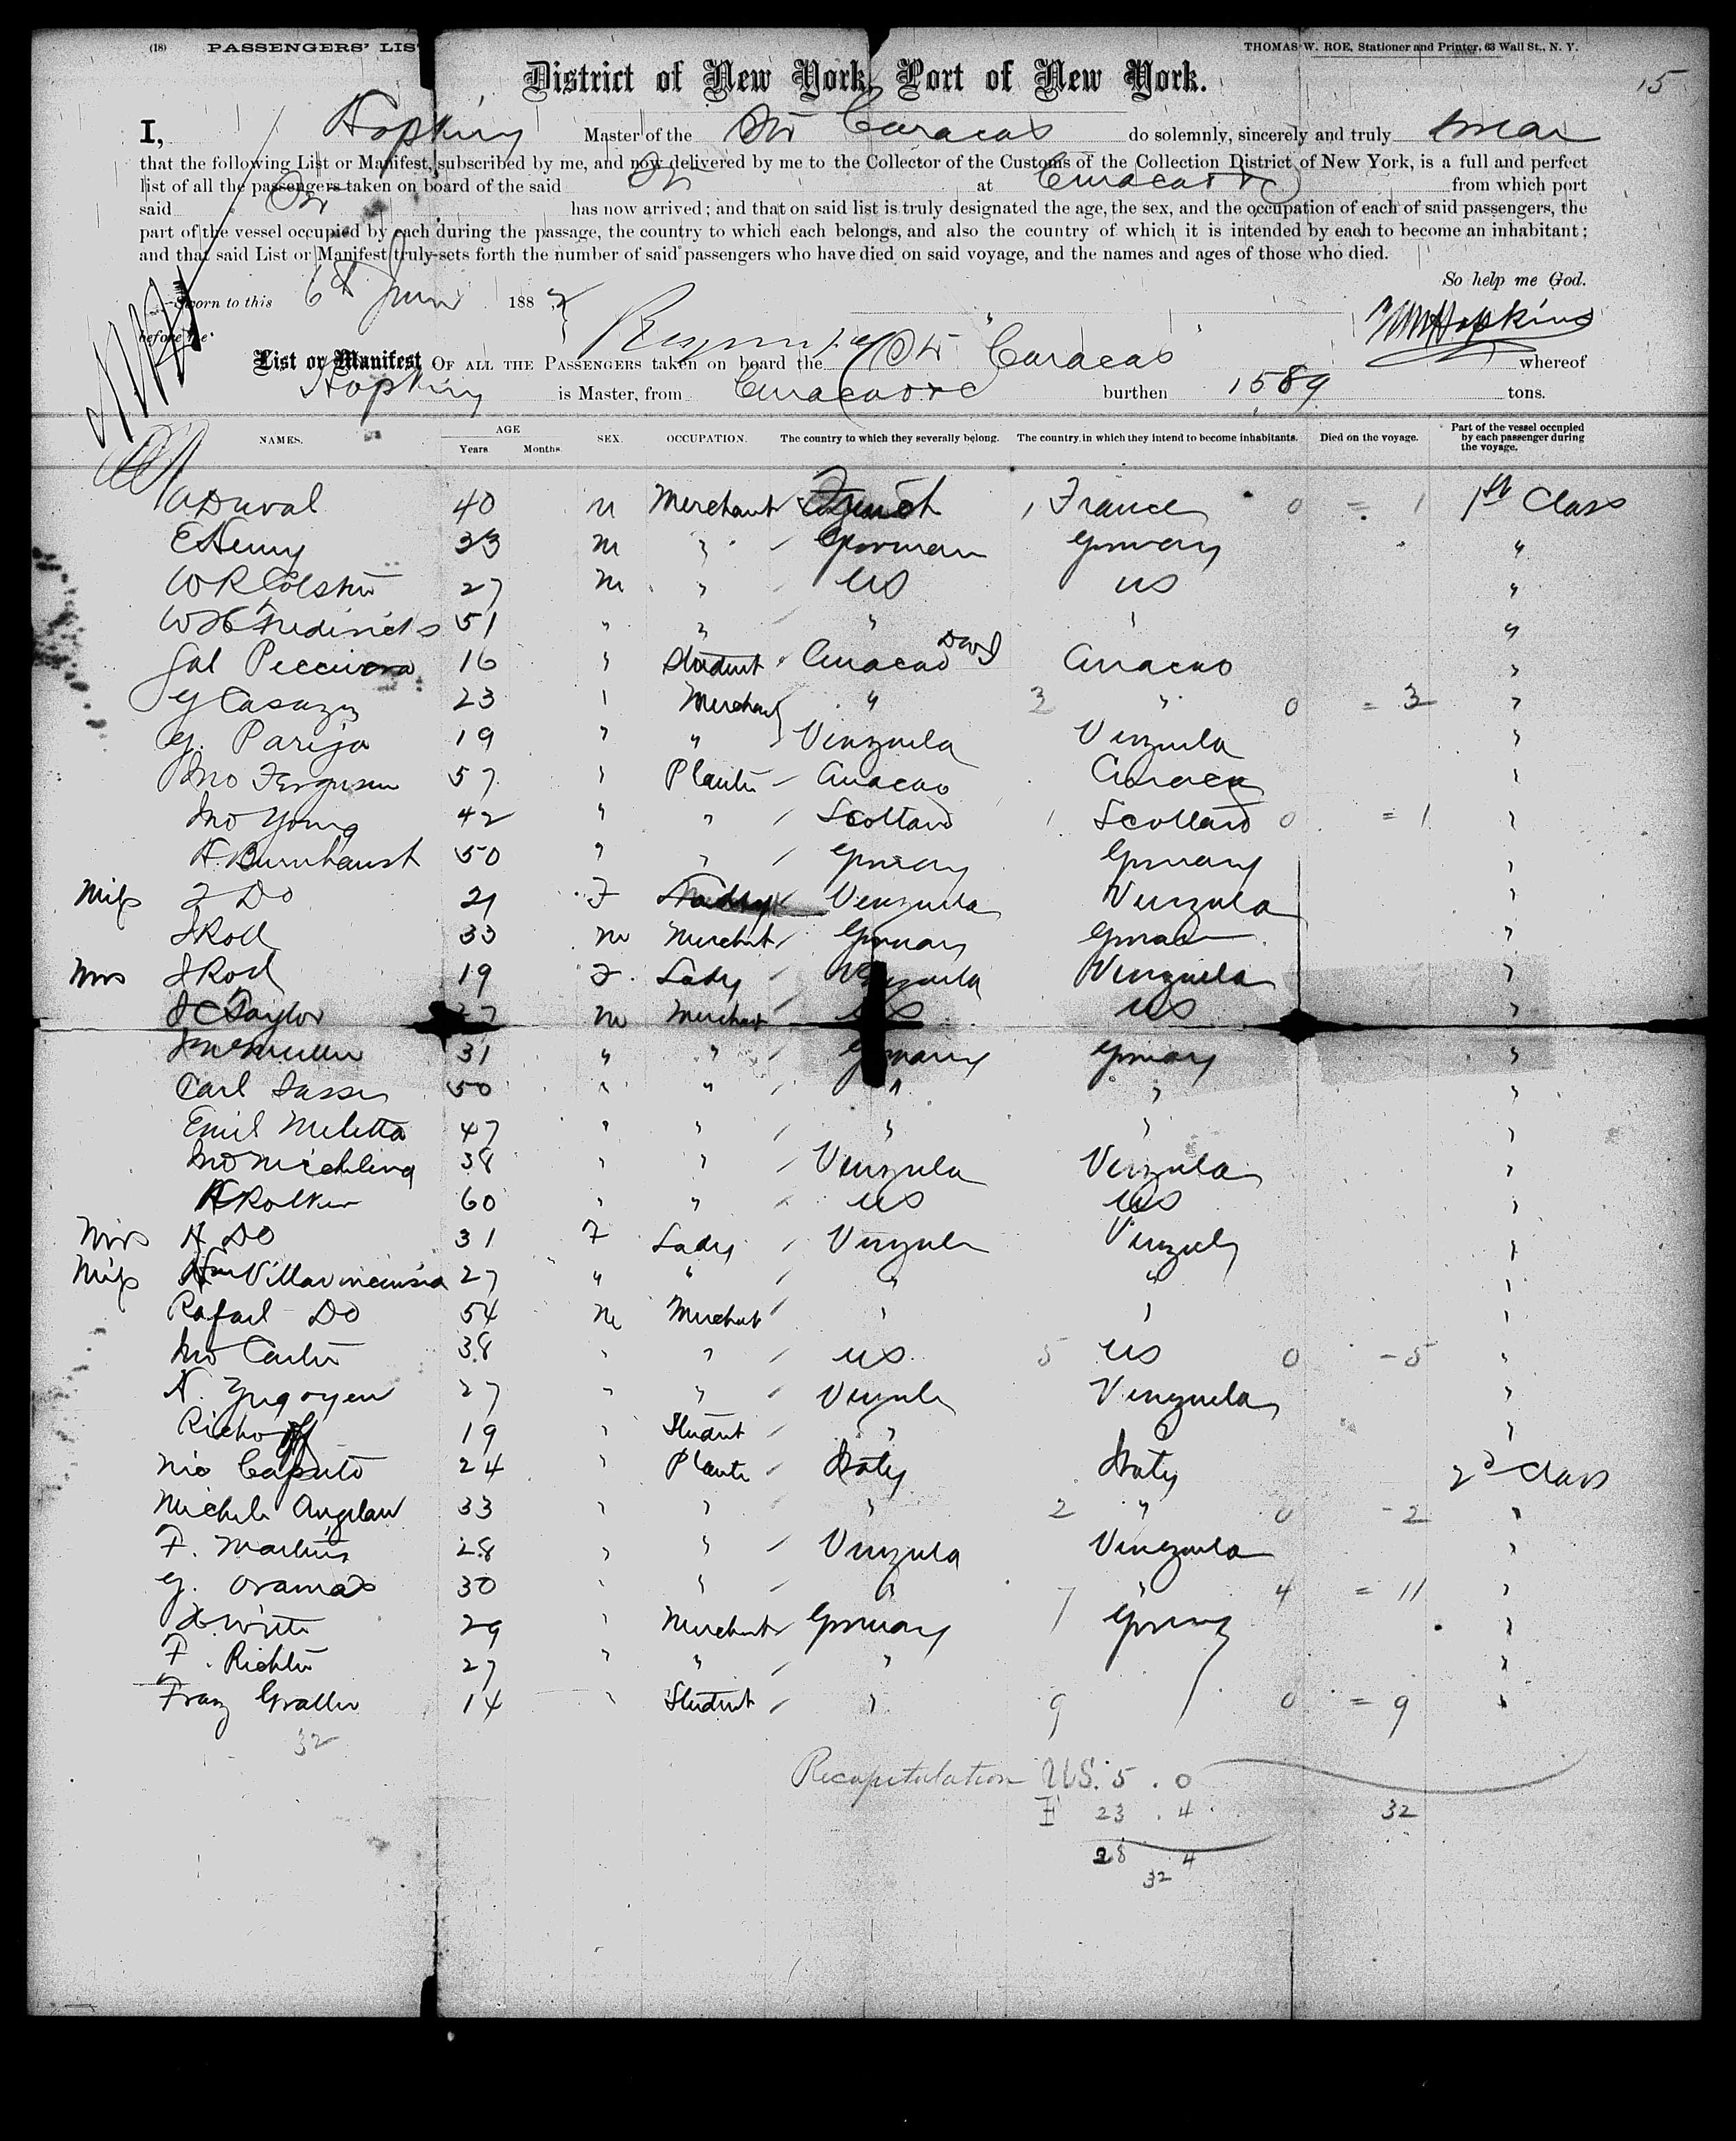 (18) PASSENGERS' LIS THOMAS W. ROE, Stationer and Printer, 63 Wall St., N. Y.
15
District of New York, Port of New York.
I, Hopkins Master of the Str Caracas do solemnly, sincerely and truly swear
that the following List or Manifest, subscribed by me, and now delivered by me to the Collector of the Customs of the Collection District of New York, is a full and perfect
list of all the passengers taken on board of the said Str at Curacao &c from which port
said Str has now arrived; and that on said list is truly designated the age, the sex, and the occupation of each of said passengers, the
part of the vessel occupied by each during the passage, the country to which each belongs, and also the country of which it is intended by each to become an inhabitant;
and that said List or Manifest truly sets forth the number of said passengers who have died on said voyage, and the names and ages of those who died.
So help me God.
Sworn to this 6th June 188
before me Hopkins
List or Manifest OF ALL THE PASSENGERS taken on board the Str "Caracas" whereof
Hopkins is Master, from Curacao &c burthen 1589 tons.
NAMES. AGE Years Months. SEX. OCCUPATION. The country to which they severally belong. The country in which they intend to become inhabitants. Died on the voyage. Part of the vessel occupied by each passenger during the voyage.
Duval 40 M Merchant French 1 France 0 = 1 1st Class
E Henry 33 M " German Germany "
W R Colston 27 M " US US "
W H Fredericks 51 " " " " "
16 " Student Curacao DWI Curacao "
23 " Merchant " 3 " 0 = 3 "
G. Pariza 19 " " Venzuela Venzuela "
Jno Ferguson 57 " Planter Curacao Curacao "
Jno Young 42 " " Scotland 1 Scotland 0 = 1 "
50 " " Germany Germany "
Miss Do 21 F Venzuela Venzuela "
J Rod 33 M Merchant Germany "
Mrs J Rod 19 F Lady Venzuela Venzuela "
J C Taylor M Merchant US US "
31 " " Germany Germany "
Carl 50 " " " " "
Emil Meletta 47 " " " " "
Jno 38 " " Venzuela Venzuela "
H Rolker 60 " " US US "
Mrs H Do 31 F Lady Venzula "
Miss 27 " " " " "
Rafael Do 54 M Merchant " " "
Jno Carter 38 " " US 5 US 0 - 5 "
N. Yrigoyen 27 " " Venzuela "
19 " Student " "
Nic Caputo 24 " Planter Italy Italy 2d Class
33 " " " 2 " 0 - 2 "
F. Martins 28 " " Venzuela Venzuela "
G. Oramas 30 " " " 7 " 4 = 11 "
29 " Merchant Germany "
F. Richter 27 " " " "
Franz 14 " Student " 9 0 = 9 "
32
Recapitulation U.S. 5 . 0
F 23 . 4 32
28 4
32